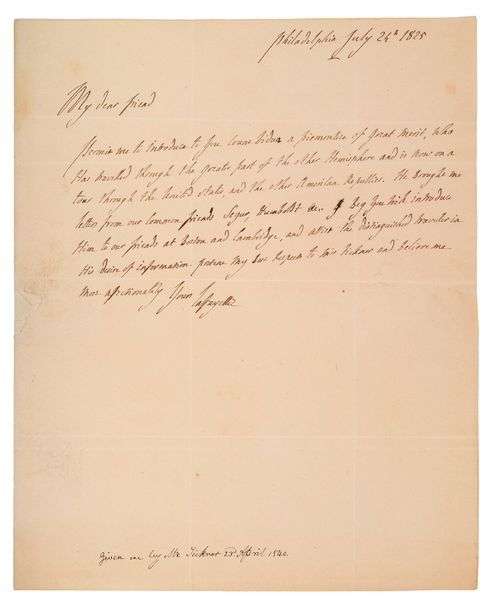 Philadelphia July 24h 1825
My dear friend
Permit me to introduce to you Count Vidua a piemontese of Great Merit, who
Has travelled through the greater part of the other Hemisphere and is now on a
tour through the United States, and the other American Republics. He brought me
letters from our common friends Segur, Humboldt &c. I Beg You Will introduce
Him to our friends at Boston and Cambridge, and assist this distinguished traveller in
His desire of information. present My Best Respects to Mrs Ticknor and believe me
Most affectionately Yours
Lafayette
Given me by Mr Ticknor April 1840